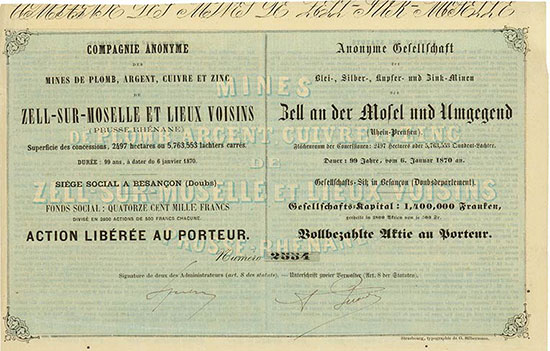 COMPAGNIE ANONYME
DES
MINES DE PLOMB, ARGENT, CUIVRE ET ZINC
DE
ZELL-SUR-MOSELLE ET LIEUX VOISINS
(PRUSSE RHÉNANE)
Superficie des concessions, 2497 hectares ou 5,763,553 lachters carrés.
DURÉE : 99 ans, à dater du 6 janvier 1870.
SIÉGE SOCIAL A BESANÇON (Doubs).
FONDS SOCIAL : QUATORZE CENT MILLE FRANCS
DIVISÉ EN 2800 ACTIONS DE 500 FRANCS CHACUNE.
ACTION LIBÉRÉE AU PORTEUR.
Anonyme Gesellschaft
der
Blei-, Silber-, Kupfer- und Zink-Minen
von
Zell an der Mosel und Umgegend
(Rhein-Preußen)
Flächenraum der Concessionen: 2497 Hectares oder 5,763,553 Quadrat-Lachter.
Dauer: 99 Jahre, vom 6. Januar 1870 an.
Gesellschafts-Sitz in Besançon (Doubsdepartement).
Gesellschafts-Kapital: 1,400,000 Franken,
getheilt in 2800 Aktien von je 500 Fr.
Vollbezahlte Aktie au Porteur.
MINES
DE PLOMB ARGENT CUIVRE ZINC
DE
ZELL-SUR-MOSELLE ET LIEUX VOISINS
PRUSSE-RHÉNANE
Numéro 2334
Signature de deux des Administrateurs (art. 8 des statuts). — Unterschrift zweier Verwalter (Art. 8 der Statuten).
Strasbourg, typographie de G. Silbermann.